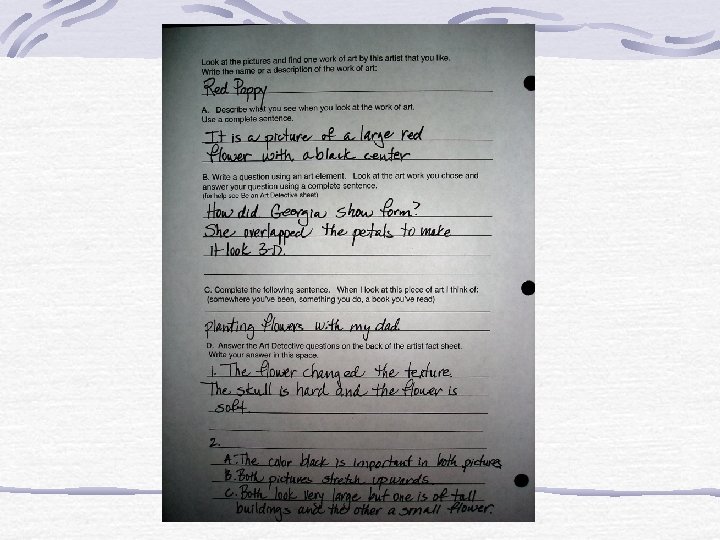 Look at the pictures and find one work of art by this artist that you like.
Write the name or a description of the work of art:
Red Poppy
A. Describe what you see when you look at the work of art.
Use a complete sentence.
It is a picture of a large red
flower with a black center
B. Write a question using an art element. Look at the art work you chose and
answer your question using a complete sentence.
(for help see Be an Art Detective sheet)
How did Georgia show form?
She overlapped the petals to make
it look 3-D.
C. Complete the following sentence. When I look at this piece of art I think of:
(somewhere you've been, something you do, a book you've read)
planting flowers with my dad.
D. Answer the Art Detective questions on the back of the artist fact sheet.
Write your answer in this space.
1. The flower changed the texture.
The skull is hard and the flower is
soft.
2.
A. The color black is important in both pictures
B. Both pictures stretch upwards
C. Both look very large but one is of tall
buildings and the other a small flower.